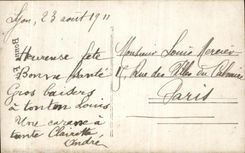 Lyon, 23 août 1911
Heureuse fête
Bonne santé
Gros baisers
à tonton Louis
Une caresse à
tante Clairotte
André
Monsieur Louis Mercier
Rue des Filles du Calvaire
Paris